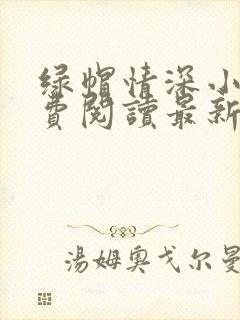 绿帽情深小
费閱讀最新
湯姆奥戈尔曼